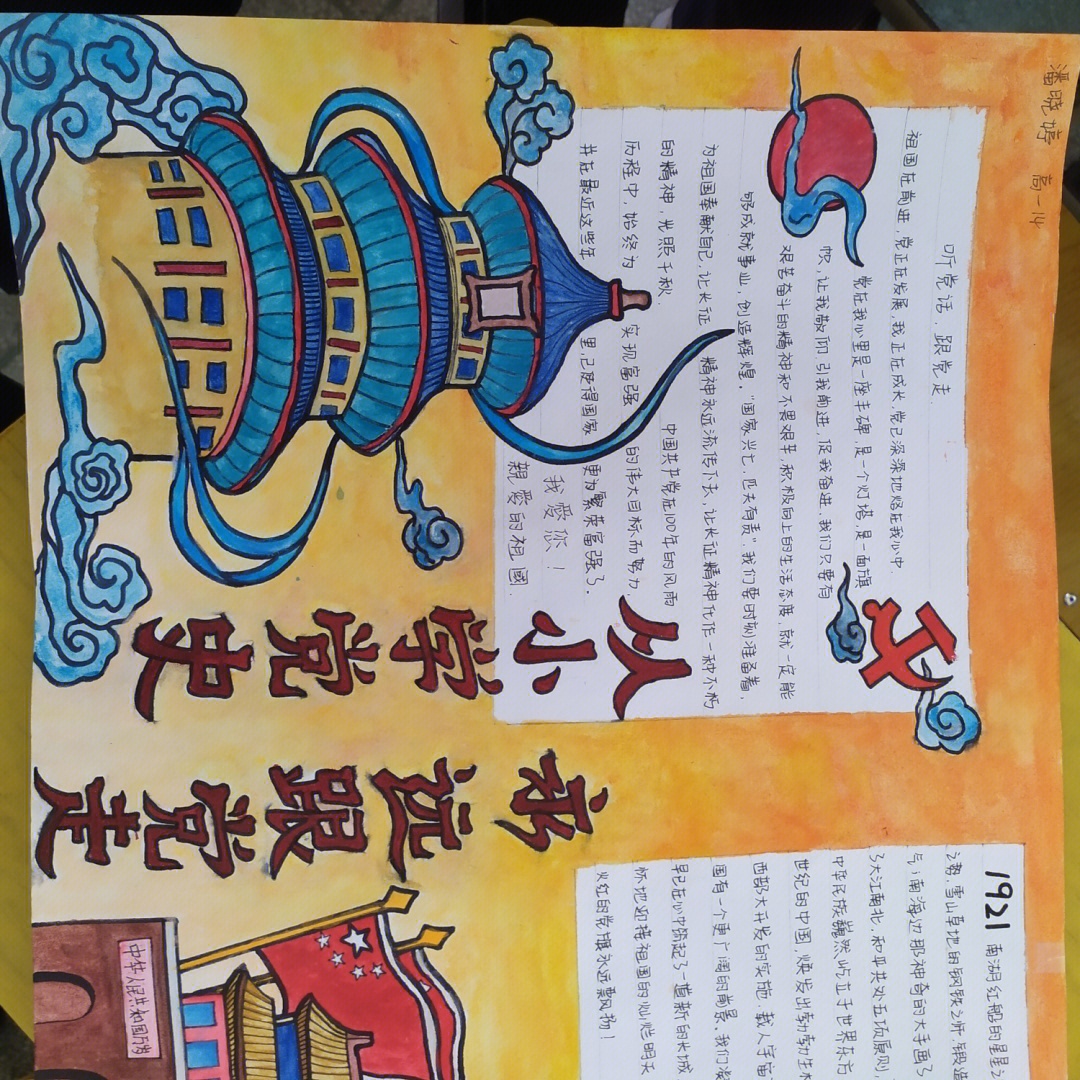 潘晓婷 高一14
听党话，跟党走.
祖国在前进，党正在发展，我正在成长，党已深深地烙在我心中.
党在我心里是一座丰碑，是一个灯塔，是一面旗
帜，让我敬仰.引我前进，促我奋进，我们只要有
艰苦奋斗的精神和不畏艰辛，积极向上的生活态度，就一定能
够成就事业，创造辉煌，“国家兴亡，匹夫有责”我们要时刻准备着，
为祖国奉献自己，让长征 精神永远流传下去，让长征精神化作一种不朽
的精神，光照千秋. 中国共产党在100年的风雨
历程中，始终为 实现富强 的伟大目标而努力.
并在最近这些年 里，已使得国家 更为繁荣富强了.
我爱您！
親爱的祖國.
从小学党史
永远跟党走
1921 南湖红船的星星之
之势，雪山草地的钢铁之师，锻造
气；南海边那神奇的大手画了
了大江南北，和平共处五项原则，
中华民族巍然屹立于世界东方
世纪的中国，焕发出勃勃生机
西部大开发的实施，载人宇宙
国有一个更广阔的前景，我们凝
早已在心中筑起了一道新的长城
怀地迎接祖国的灿烂明天
火红的党旗永远飘扬！
中华人民共和国万岁